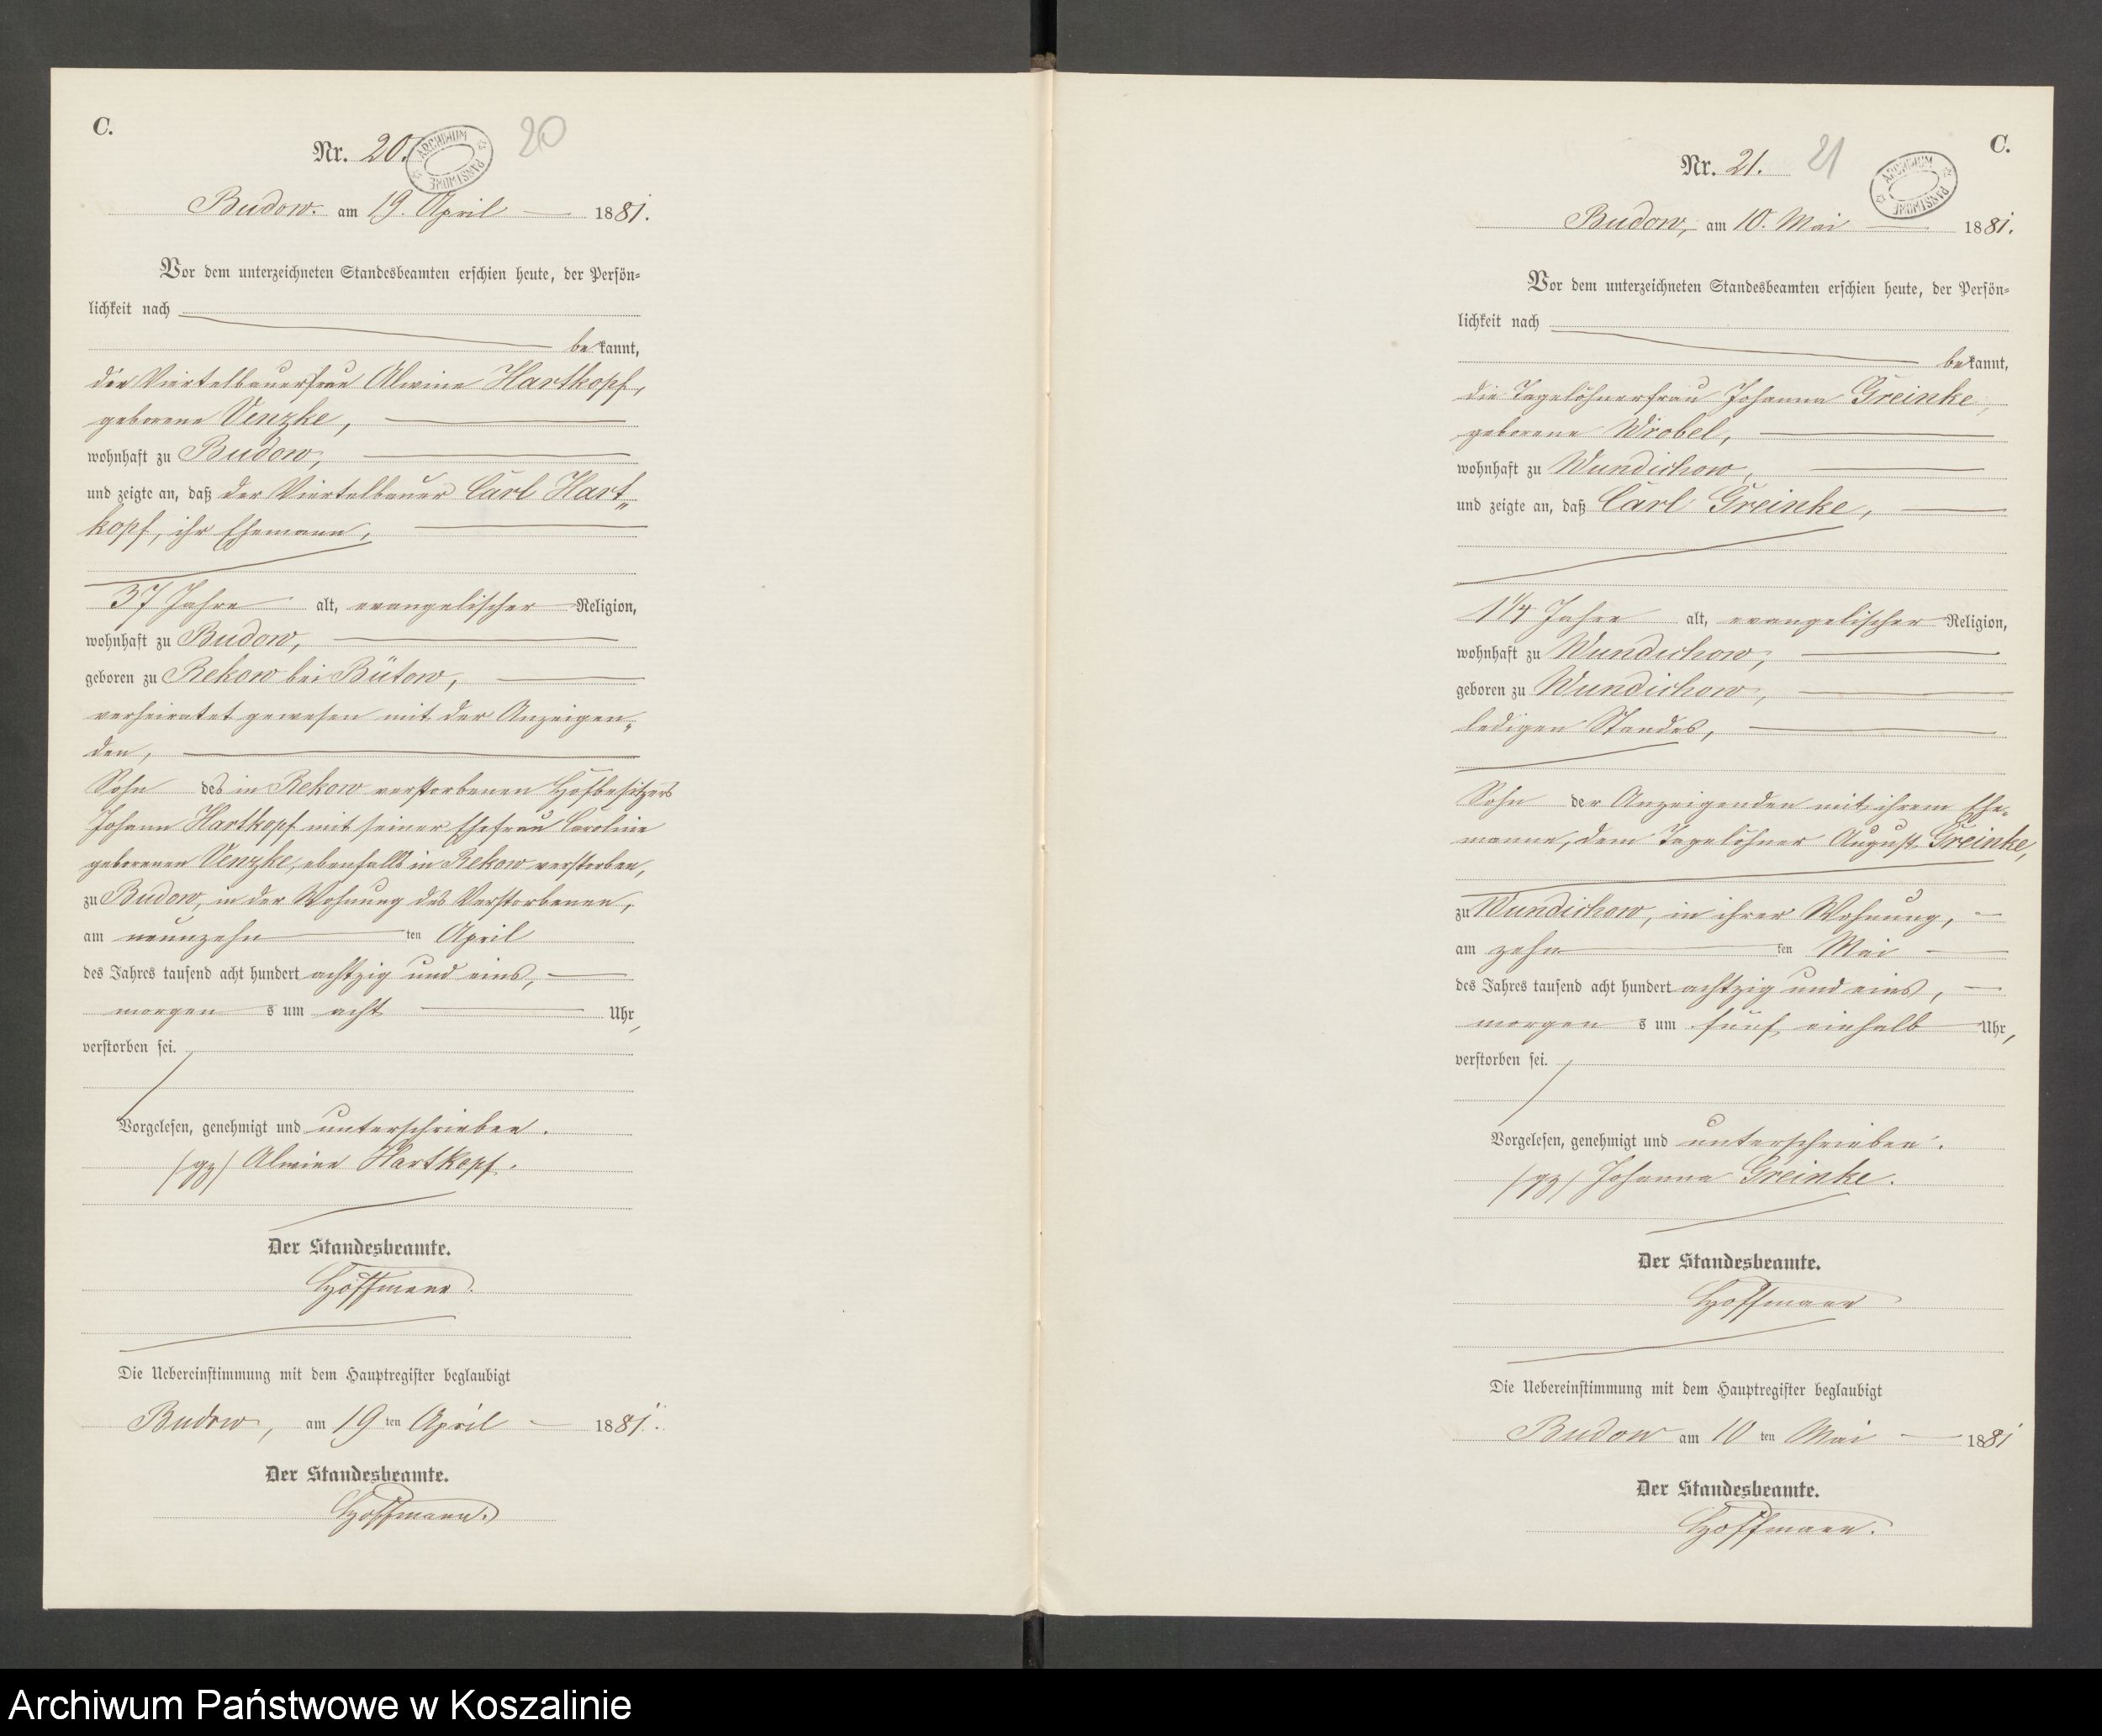 C.
Nr. 20.
ARCHIWUM PAŃSTWOWE
20
Budow. am 19. April 1881.
Vor dem unterzeichneten Standesbeamten erschien heute, der Persön-
lichkeit nach
bekannt,
die Viertelbauerfrau Alwine Hartkopf,
geborene Venzke,
wohnhaft zu Budow,
und zeigte an, daß der Viertelbauer Carl Hart-
kopf, ihr Ehemann,
37 Jahre alt, evangelischer Religion,
wohnhaft zu Budow,
geboren zu Rekow bei Bütow,
verheiratet gewesen mit der Anzeigen-
den,
Sohn des in Rekow verstorbenen Hofbesitzers
Johann Hartkopf mit seiner Ehefrau Caroline
geborenen Venzke, ebenfalls in Rekow verstorben,
zu Budow, in der Wohnung des Verstorbenen,
am neunzehn ten April
des Jahres tausend acht hundert achtzig und eins,
morgen s um acht Uhr,
verstorben sei.
Vorgelesen, genehmigt und unterschrieben.
(gz) Alwine Hartkopf.
Der Standesbeamte.
Hoffmann.
Die Uebereinstimmung mit dem Hauptregister beglaubigt
Budow, am 19 ten April 1881.
Der Standesbeamte.
Hoffmann.
C.
Nr. 21.
21
ARCHIWUM PAŃSTWOWE
Budow, am 10. Mai 1881.
Vor dem unterzeichneten Standesbeamten erschien heute, der Persön-
lichkeit nach
bekannt,
die Tagelöhnerfrau Johanna Greinke,
geborene Wrobel,
wohnhaft zu Wundichow,
und zeigte an, daß Carl Greinke,
1 1/4 Jahre alt, evangelischer Religion,
wohnhaft zu Wundichow,
geboren zu Wundichow,
ledigen Standes,
Sohn der Anzeigenden mit ihrem Ehe-
manne, dem Tagelöhner August Greinke,
zu Wundichow, in ihrer Wohnung,
am zehn ten Mai
des Jahres tausend acht hundert achtzig und eins,
morgen s um fünf einhalb Uhr,
verstorben sei.
Vorgelesen, genehmigt und unterschrieben.
(gz) Johanna Greinke.
Der Standesbeamte.
Hoffmann
Die Uebereinstimmung mit dem Hauptregister beglaubigt
Budow am 10 ten Mai 1881
Der Standesbeamte.
Hoffmann.
Archiwum Państwowe w Koszalinie